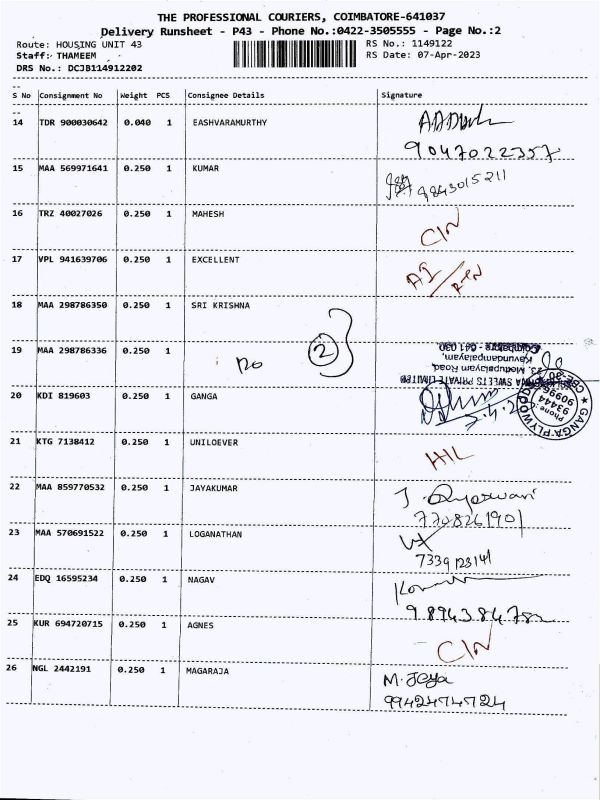 THE PROFESSIONAL COURIERS, COIMBATORE-641037
Delivery Runsheet - P43 - Phone No.:0422-3505555 - Page No.:2
Route: HOUSING UNIT 43 RS No.: 1149122
Staff: THAMEEM RS Date: 07-Apr-2023
DRS No.: DCJB114912202
S No Consignment No Weight PCS Consignee Details Signature
14 TDR 900030642 0.040 1 EASHVARAMURTHY
9047022357
15 MAA 569971641 0.250 1 KUMAR 9843015211
16 TRZ 40027026 0.250 1 MAHESH CIN
17 VPL 941639706 0.250 1 EXCELLENT
18 MAA 298786350 0.250 1 SRI KRISHNA
2
19 MAA 298786336 0.250 1
SWEETS PRIVATE LIMITED
23, Mettupalayam Road,
Kavundampalayam,
Coimbatore - 641 030.
20 KDI 819603 0.250 1 GANGA
GANGA PLYWOOD
CBE-30
Phone
93444
21 KTG 7138412 0.250 1 UNILOEVER HIL
22 MAA 859770532 0.250 1 JAYAKUMAR
7708261901
23 MAA 570691522 0.250 1 LOGANATHAN
7339123141
24 EDQ 16595234 0.250 1 NAGAV
25 KUR 694720715 0.250 1 AGNES CIN
26 NGL 2442191 0.250 1 MAGARAJA M. Jeya
9942474724